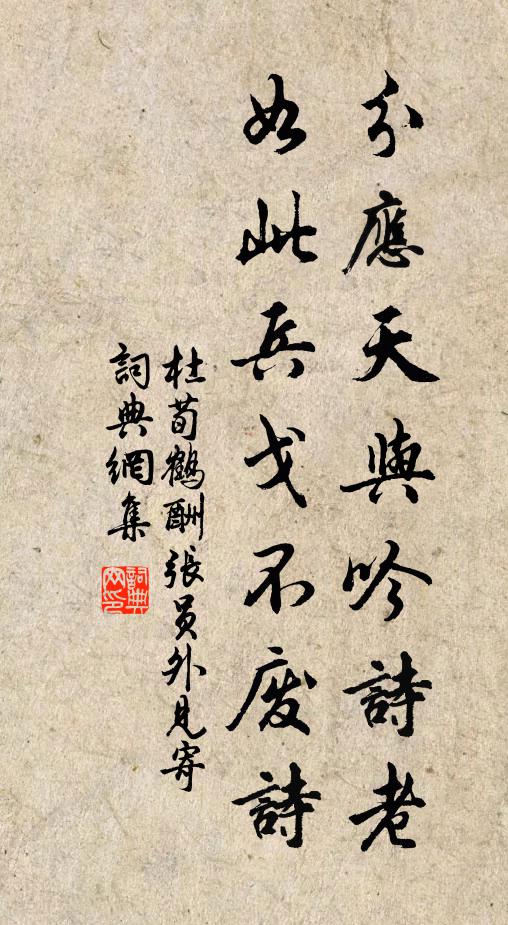 分應天與吟詩老
如此兵戈不廢詩
杜荀鶴酬張員外見寄
詞典網集
詞典網印